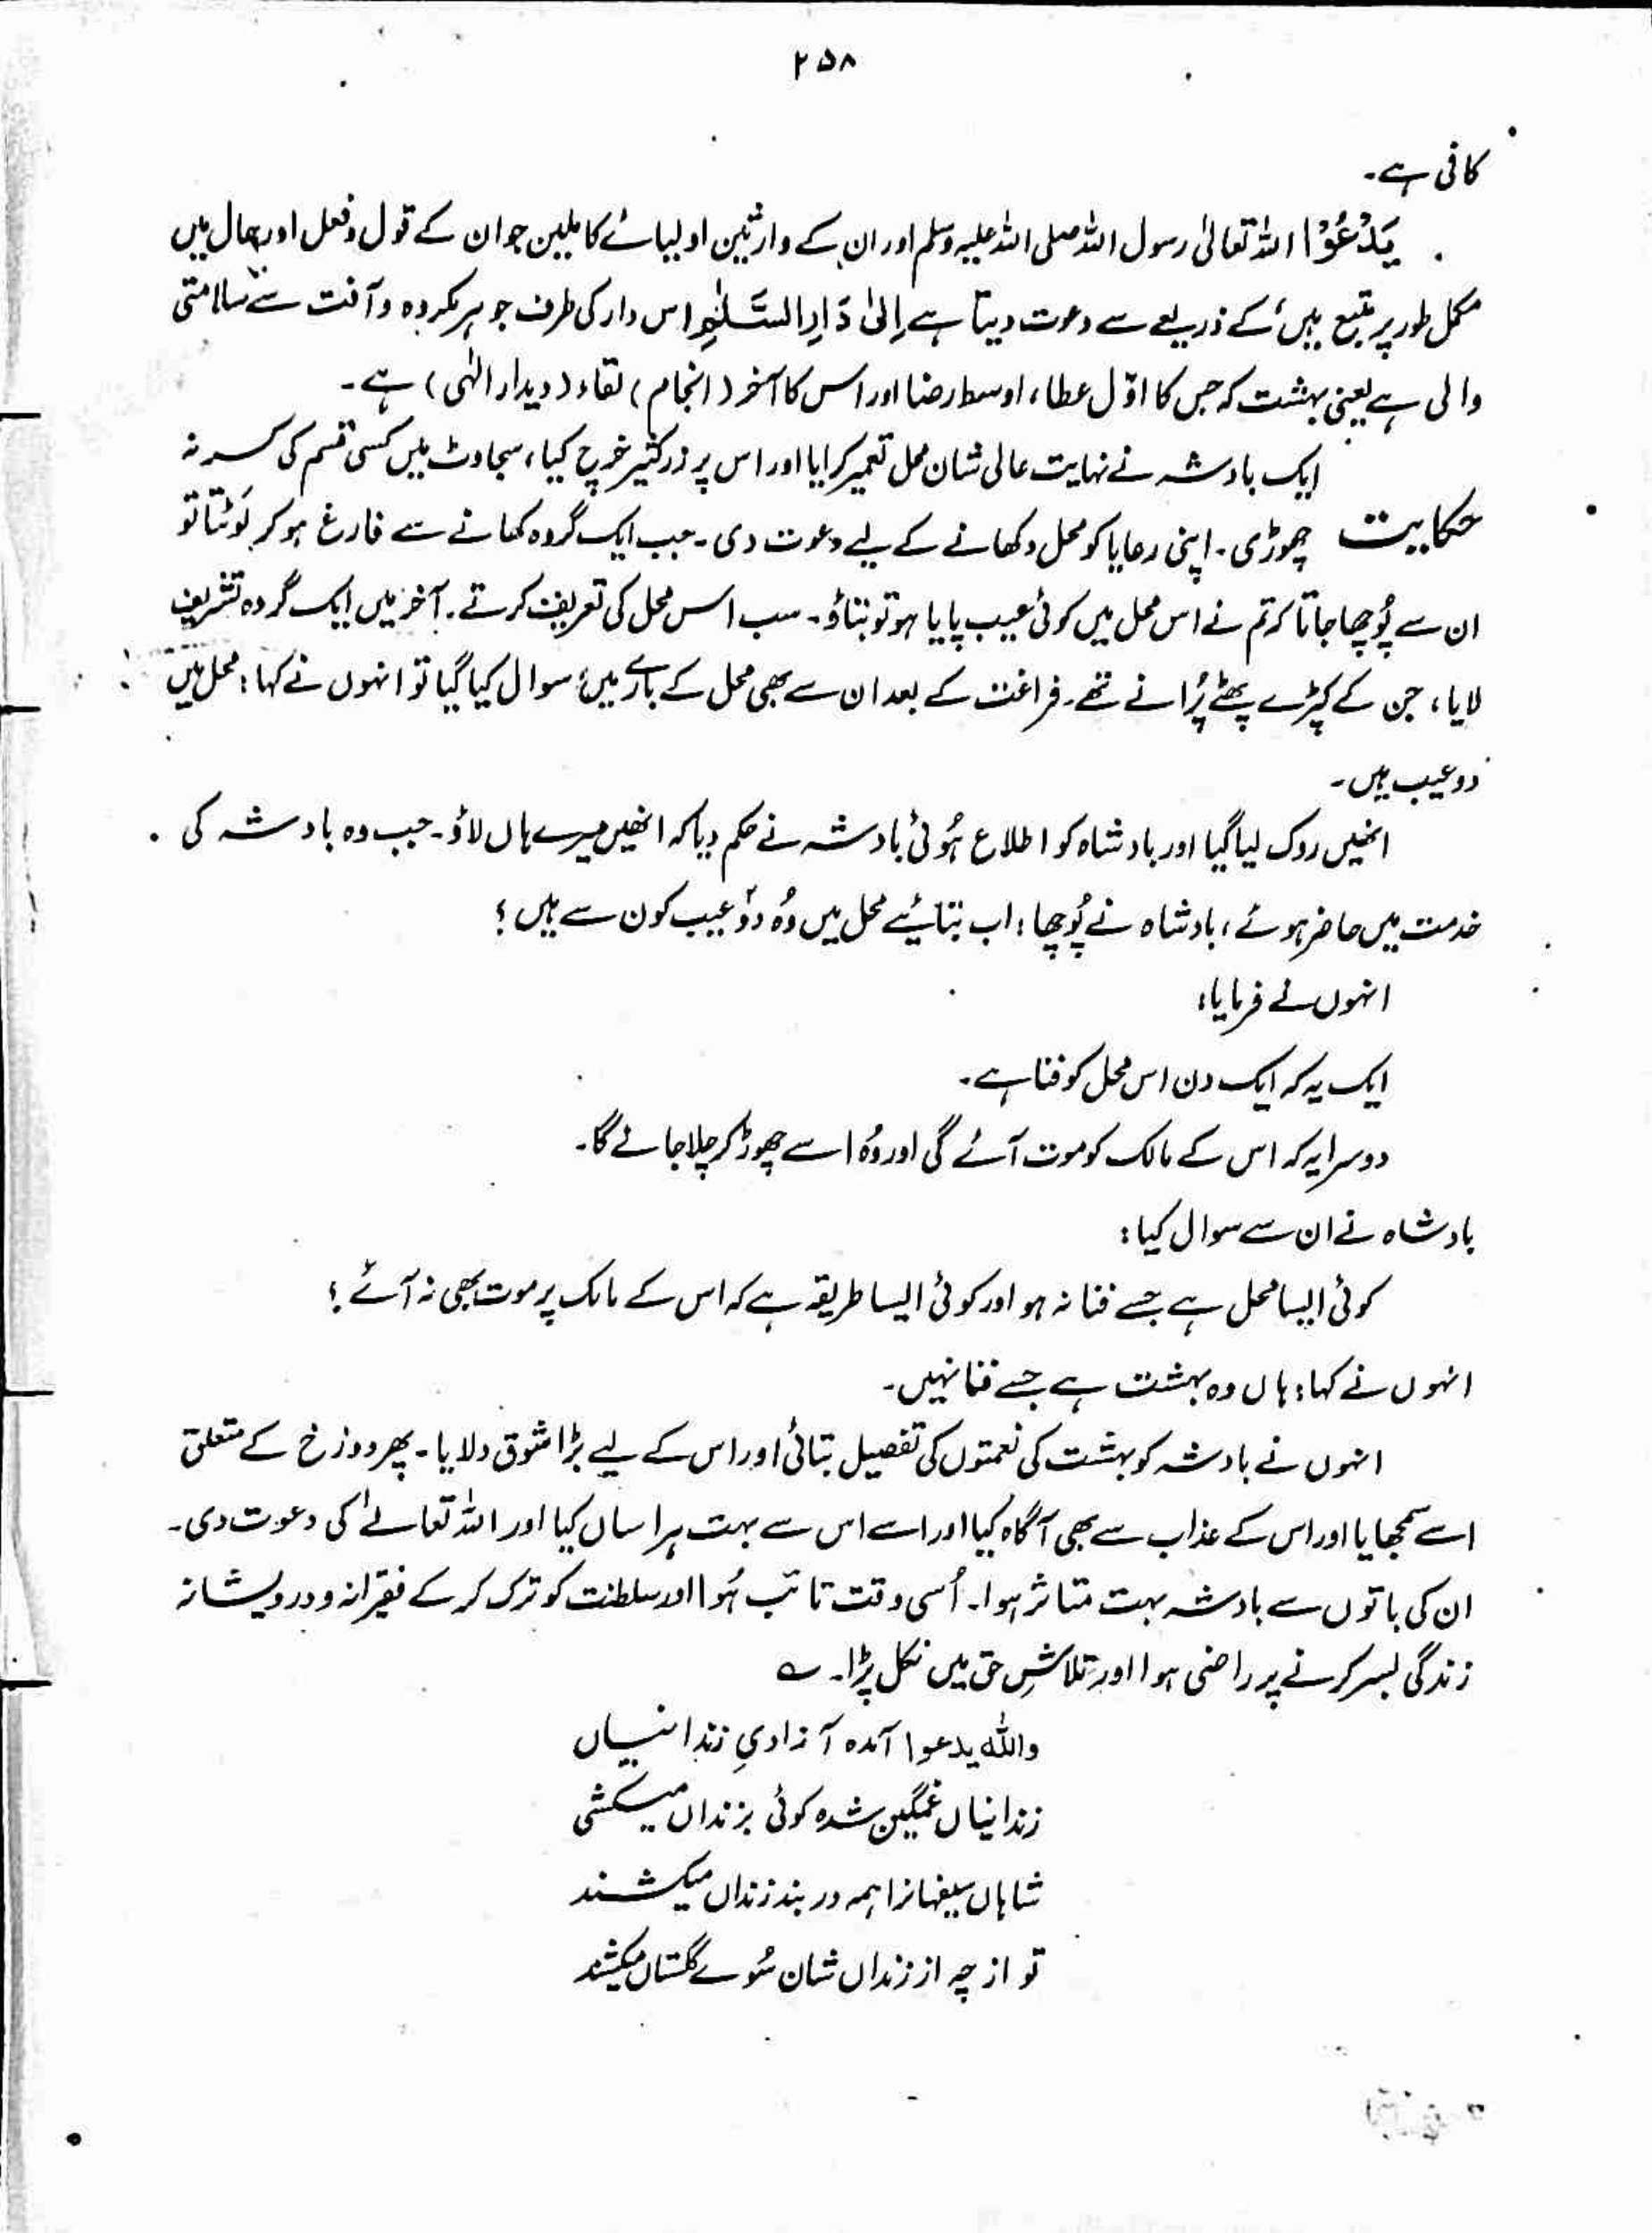 ۲۵۸
کافی ہے۔
یَدْعُوْا اللہ تعالیٰ رسول اللہ صلی اللہ علیہ وسلم اور ان کے وارثین اولیائے کاملین جو ان کے قول و فعل اور حال میں
مکمل طور پر متبع ہیں کے ذریعے سے دعوت دیتا ہے اِلیٰ دَارِ السَّلٰمِ اس دار کی طرف جو ہر مکروہ و آفت سے سلامتی
والی ہے یعنی بہشت کہ جس کا اوّل عطا، اوسط رضا اور اس کا آخر (انجام) لقاء (دیدار الٰہی) ہے۔
ایک بادشہ نے نہایت عالی شان محل تعمیر کرایا اور اس پر زر کثیر خرچ کیا، سجاوٹ میں کسی قسم کی کسر نہ
حکایت چھوڑی۔ اپنی رعایا کو محل دکھانے کے لیے دعوت دی۔ جب ایک گروہ کھانے سے فارغ ہو کر لَوٹتا تو
ان سے پُوچھا جاتا کہ تم نے اس محل میں کوئی عیب پایا ہو تو بتاؤ۔ سب اس محل کی تعریف کرتے۔ آخر میں ایک گروہ تشریف
لایا، جن کے کپڑے پھٹے پُرانے تھے۔ فراغت کے بعد ان سے بھی محل کے بارے میں سوال کیا گیا تو انہوں نے کہا: محل میں
دو عیب ہیں۔
انھیں روک لیا گیا اور بادشاہ کو اطلاع ہُوئی بادشہ نے حکم دیا کہ انھیں میرے ہاں لاؤ۔ جب وہ بادشہ کی
خدمت میں حاضر ہوئے، بادشاہ نے پُوچھا: اب بتائیے محل میں وُہ دو عیب کون سے ہیں؟
انہوں نے فرمایا:
ایک یہ کہ ایک دن اس محل کو فنا ہے۔
دوسرا یہ کہ اس کے مالک کو موت آئے گی اور وُہ اسے چھوڑ کر چلا جائے گا۔
بادشاہ نے ان سے سوال کیا:
کوئی ایسا محل ہے جسے فنا نہ ہو اور کوئی ایسا طریقہ ہے کہ اس کے مالک پر موت بھی نہ آئے؟
انہوں نے کہا: ہاں وہ بہشت ہے جسے فنا نہیں۔
انہوں نے بادشہ کو بہشت کی نعمتوں کی تفصیل بتائی اور اس کے لیے بڑا شوق دلایا۔ پھر دوزخ کے متعلق
اسے سمجھایا اور اس کے عذاب سے بھی آگاہ کیا اور اسے اس سے بہت ہراساں کیا اور اللہ تعالےٰ کی دعوت دی۔
ان کی باتوں سے بادشہ بہت متاثر ہوا۔ اُسی وقت تائب ہُوا اور سلطنت کو ترک کر کے فقیرانہ و درویشانہ
زندگی بسر کرنے پر راضی ہوا اور تلاشِ حق میں نکل پڑا۔ ؎
واللہ یدعوا آمدہ آزادیِ زندانیاں
زندانیاں غمگین شدہ کوئی بزنداں میکشی
شاہاں سفیہانرا ہمہ در بند زنداں میکشند
تو از چہ از زنداں شان سُوے گلستاں میکشد